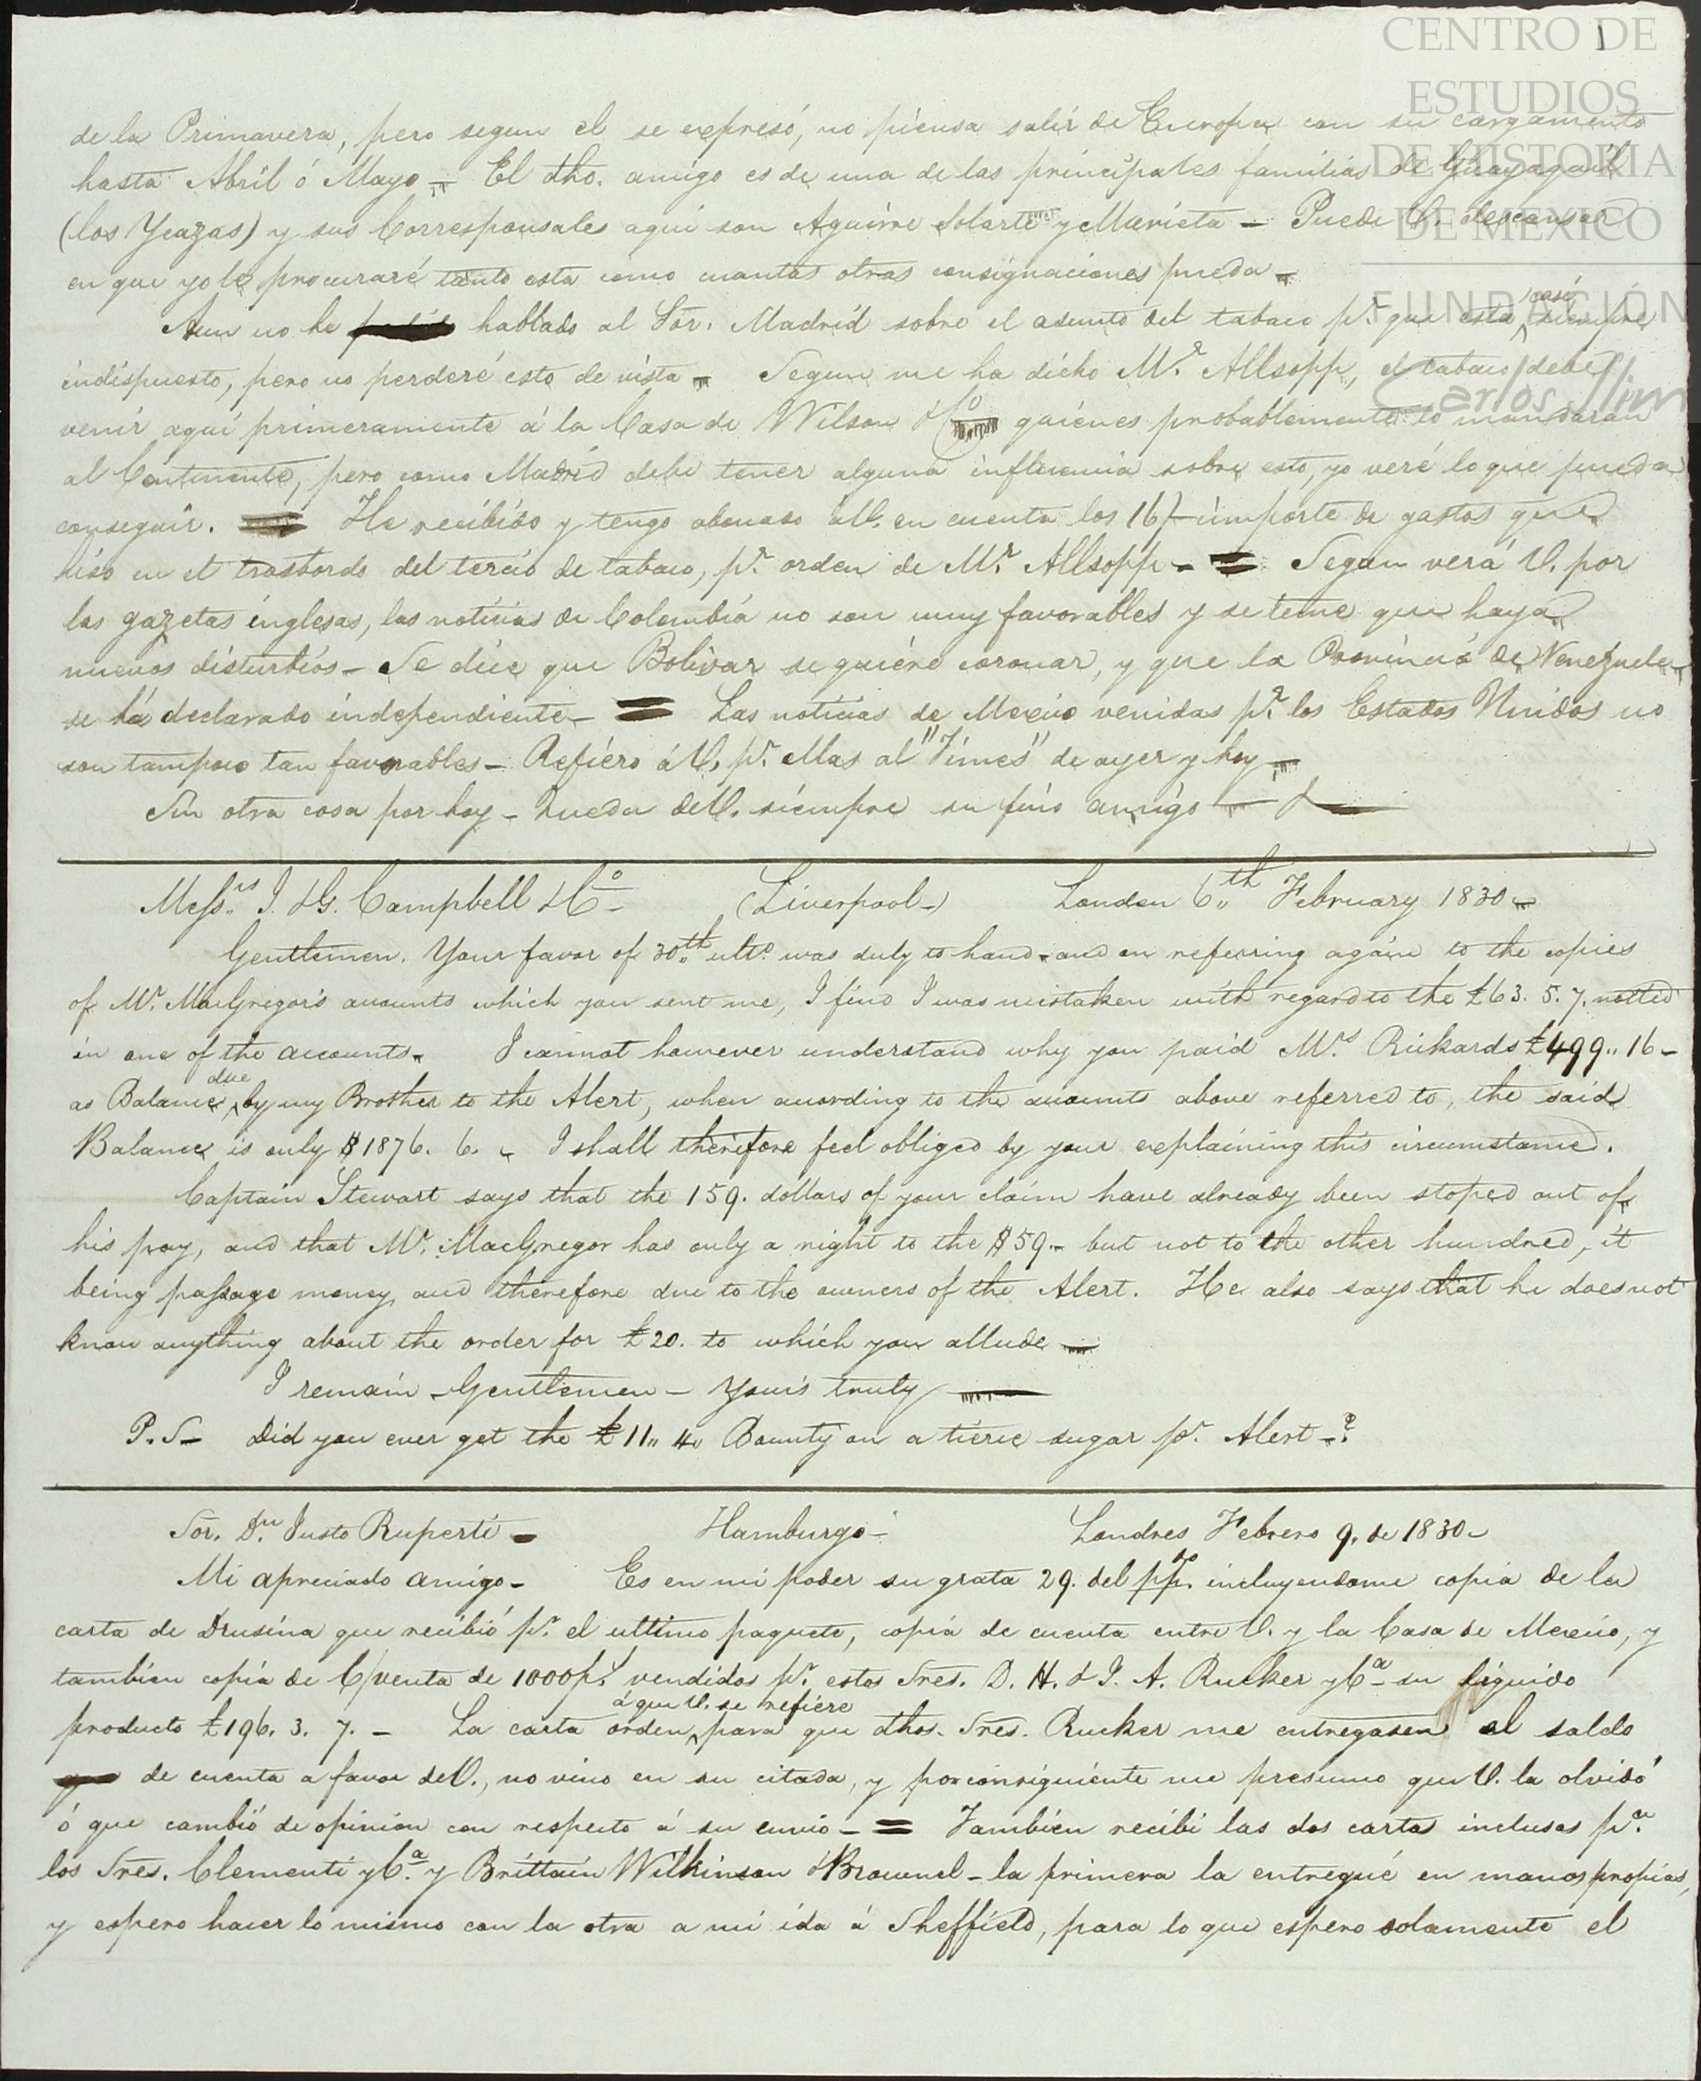 1
CENTRO DE
ESTUDIOS
DE HISTORIA
DE MEXICO
FUNDACIÓN
Carlos Slim
de la Primavera, pero segun el se expresó, no piensa salir de Europa con su cargamento
hasta Abril ó Mayo = El dho. amigo es de una de las principales familias de Guayaquil
(los Ycazas) y sus Corresponsales aqui son Aguirre Solarte y Murrieta - Puede V. descansar
en que yo le procuraré tanto esta como cuantas otras consignaciones pueda =
Aun no he hablado al Sor. Madrid sobre el asunto del tabaco pr. que está casi siempre
indispuesto, pero no perderé esto de vista = Segun me ha dicho Mr. Allsopp, el tabaco debe
venir aqui primeramente á la Casa de Wilson & Co quienes probablemente lo mandaran
al Continente, pero como Madrid debe tener alguna influencia sobre esto, yo veré lo que pueda
conseguir. = He recibido y tengo abonado a V. en cuenta los 16/- importe de gastos que
hiso en el trasbordo del tercio de tabaco, pr. orden de Mr. Allsopp - = Segun verá V. por
las gazetas inglesas, las noticias de Colombia no son muy favorables y se teme que haya
nuevos disturbios - Se dice que Bolivar se quiere coronar, y que la Provincia de Venezuela
se há declarado independiente - = Las noticias de Mexico venidas pr. los Estados Unidos no
son tampoco tan favorables - Refiero á V. pr. ellas al "Times" de ayer y hoy =
Sin otra cosa por hoy - Queda de V. siempre su fino amigo - &
Messrs. J. & G. Campbell & Co - (Liverpool -) London 6th February 1830 -
Gentlemen. Your favor of 30th ulto. was duly to hand - and on referring again to the copies
of Mr. MacGregor's accounts which you sent me, I find I was mistaken with regard to the £63. 5. 7. notted
in one of the accounts. I cannot however understand why you paid Mrs. Rickards £499.. 16 -
as Balance due by my Brother to the Alert, when according to the accounts above referred to, the said
Balance is only $1876. 6. - I shall therefore feel obliged by your explaining this circumstance.
Captain Stewart says that the 159. dollars of your claim have already been stoped out of
his pay, and that Mr. MacGregor has only a right to the $59 - but not to the other hundred, it
being passage money and therefore due to the owners of the Alert. He also says that he does not
know anything about the order for £20. to which you allude =
I remain - Gentlemen - Yours truly
P. S - Did you ever get the £11.. 4.. Bounty on a tierce sugar pr. Alert -?
Sor. Dn. Justo Ruperti - Hamburgo - Londres Febrero 9. de 1830 -
Mi apreciado amigo - Es en mi poder su grata 29. del ppdo. incluyendome copia de la
carta de Drusina que recibió pr. el ultimo paquete, copia de cuenta entre V. y la Casa de Mexico, y
tambien copia de C/venta de 1000 ps. vendidos pr. estos Sres. D. H. & J. A. Rucker y Ca - su liquido
producto £196. 3. 7. - La carta orden á que V. se refiere para que dhos. Sres. Rucker me entregasen el saldo
de cuenta a favor de V., no vino en su citada, y por consiguiente me presumo que V. la olvidó
ó que cambió de opinion con respecto á su envio - = Tambien recibi las dos cartas inclusas pa.
los Sres. Clementi y Ca. y Brittain Wilkinson & Brownel - la primera la entregué en manos propias,
y espero hacer lo mismo con la otra a mi ida á Sheffield, para lo que espero solamente el